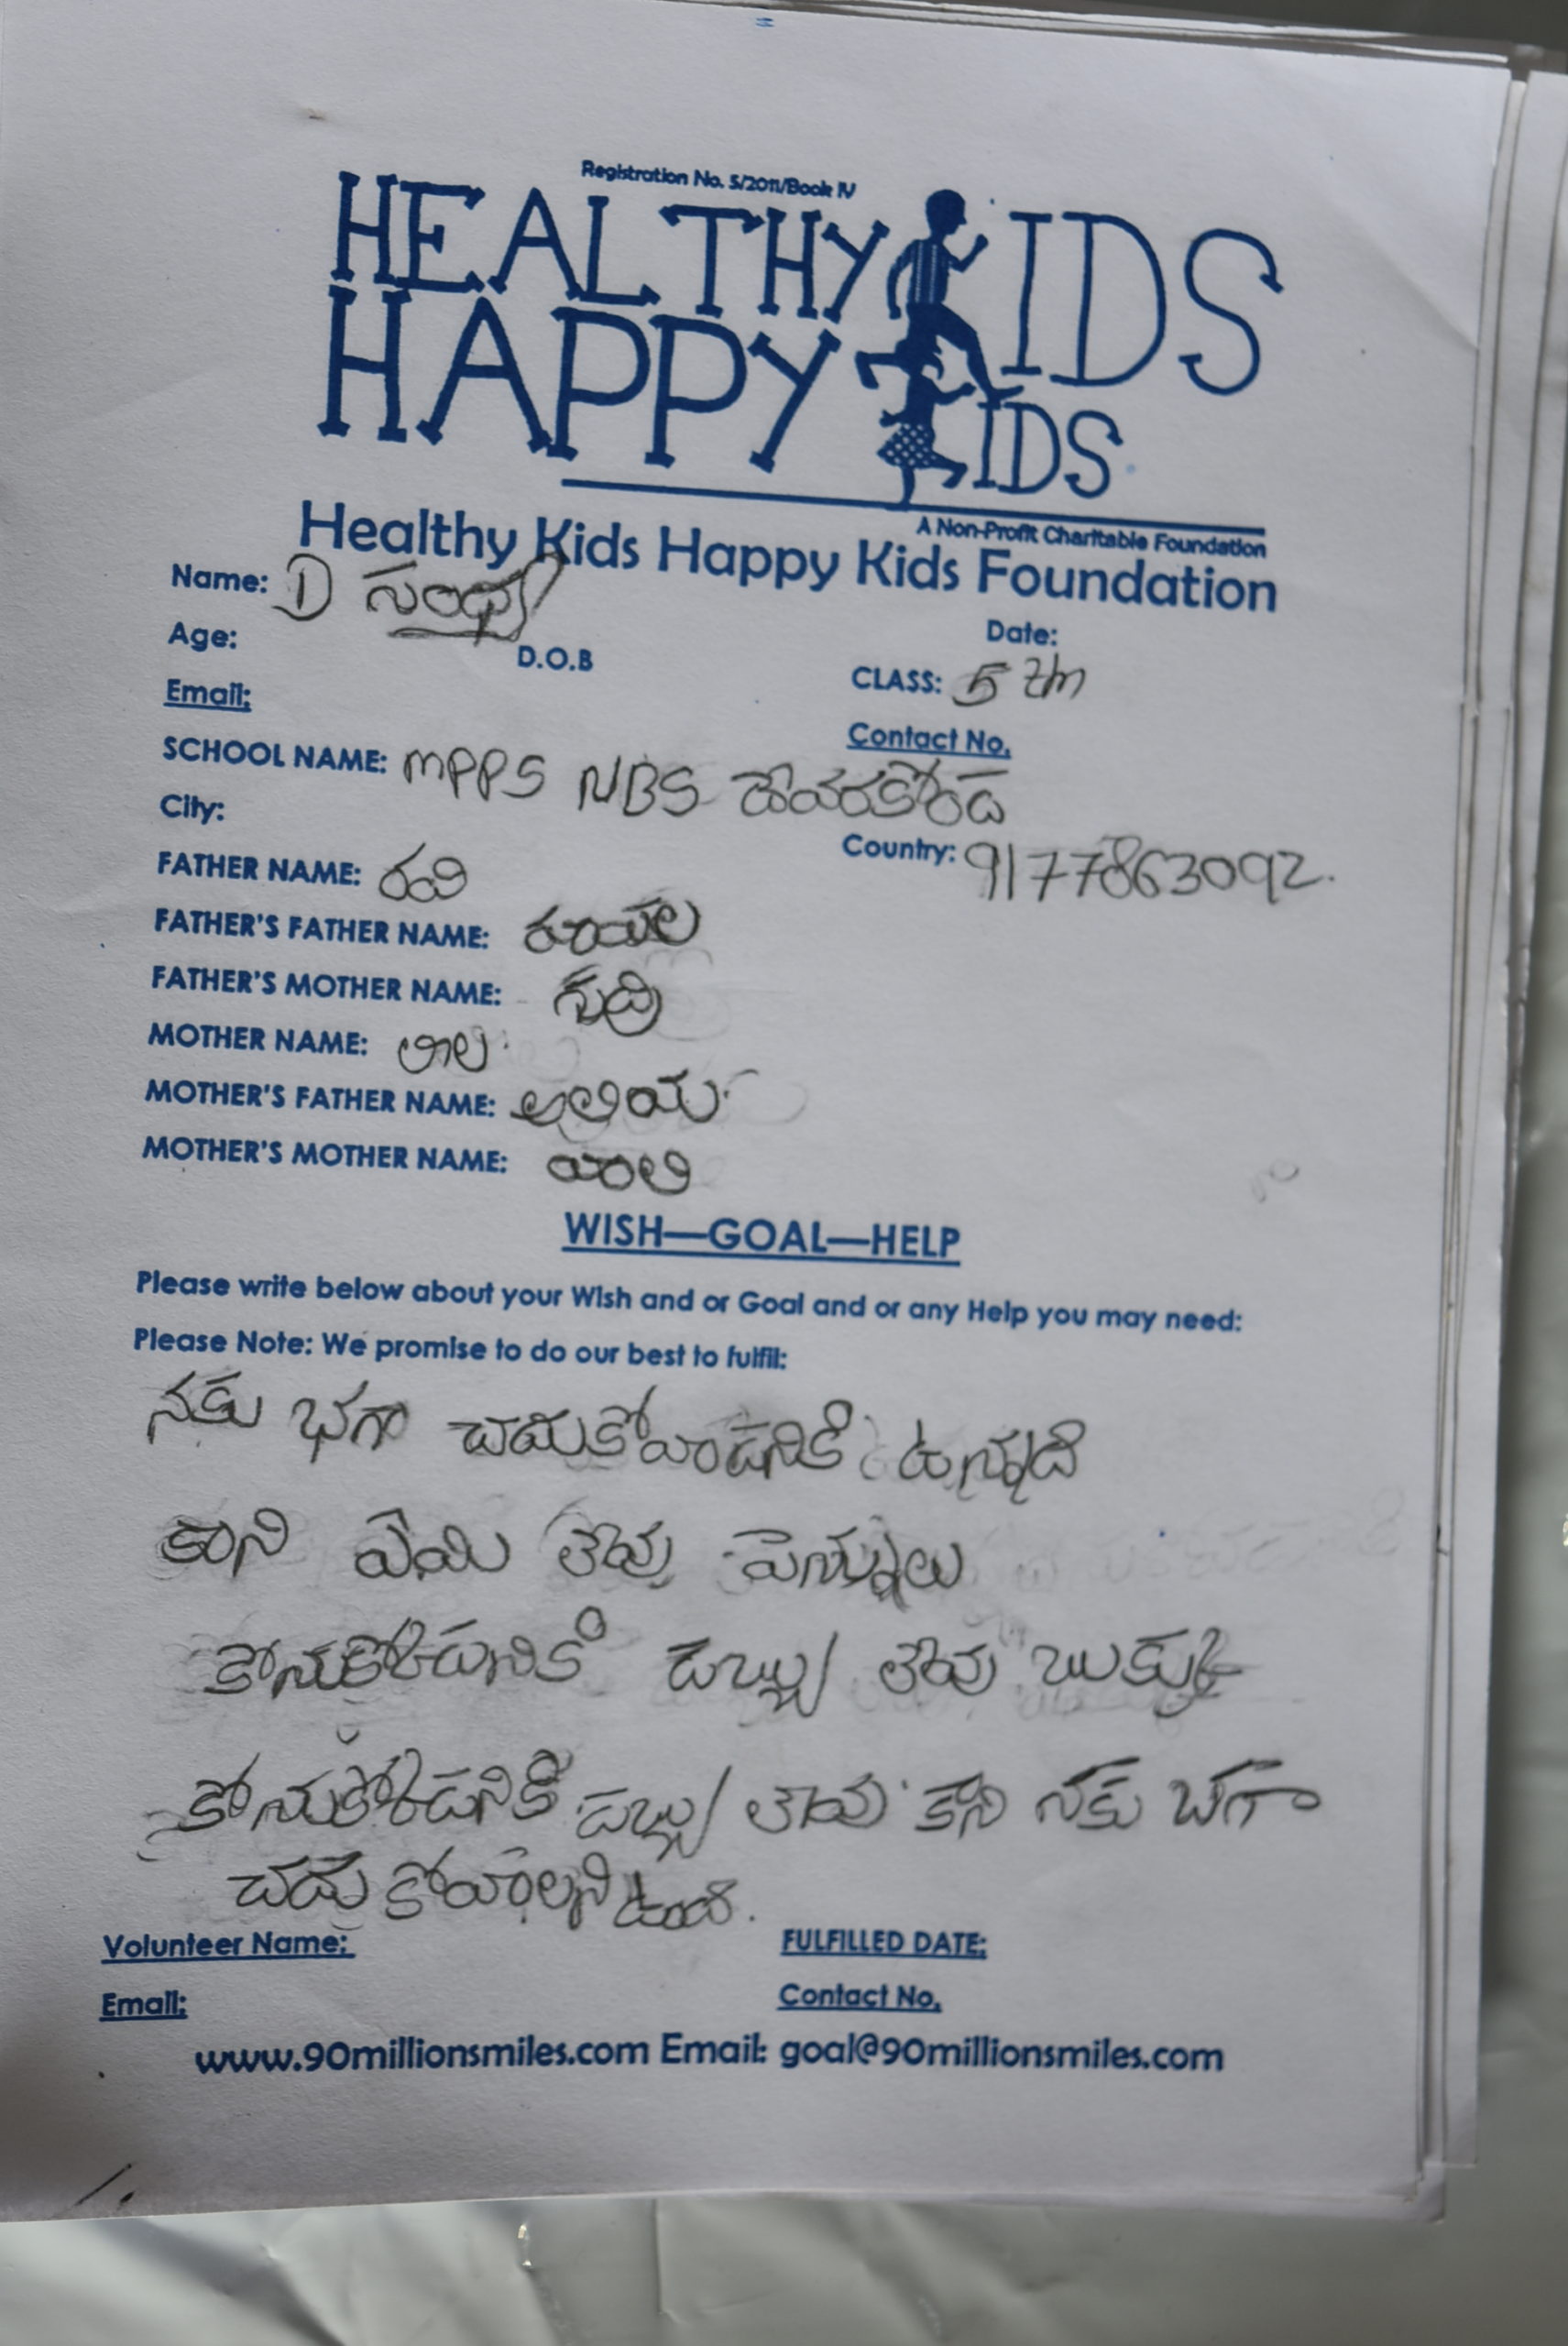 Registration No. 5/2011/Book IV
HEALTHY KIDS
HAPPY KIDS
A Non-Profit Charitable Foundation
Healthy Kids Happy Kids Foundation
Name: D సంధ్య
Date:
Age: D.O.B
CLASS: 5 th
Email:
Contact No.
SCHOOL NAME: MPPS NBS దేవరకోండ
City:
Country: 9177863092.
FATHER NAME: రవి
FATHER'S FATHER NAME:
FATHER'S MOTHER NAME:
MOTHER NAME: లాల
MOTHER'S FATHER NAME:
MOTHER'S MOTHER NAME:
WISH—GOAL—HELP
Please write below about your Wish and or Goal and or any Help you may need:
Please Note: We promise to do our best to fulfil:
నకు భగా చదుకోవండనికి ఉన్నది
కాని ఏమి లేవు పెన్నులు
కోనుకోకడనికి డబ్బు లేవు బుక్కు
కోనుకోకడనికి డబ్బు లేవు కని నకు బగా
చదు కోవాలని ఉంది.
Volunteer Name:
FULFILLED DATE:
Email:
Contact No.
www.90millionsmiles.com Email: goal@90millionsmiles.com